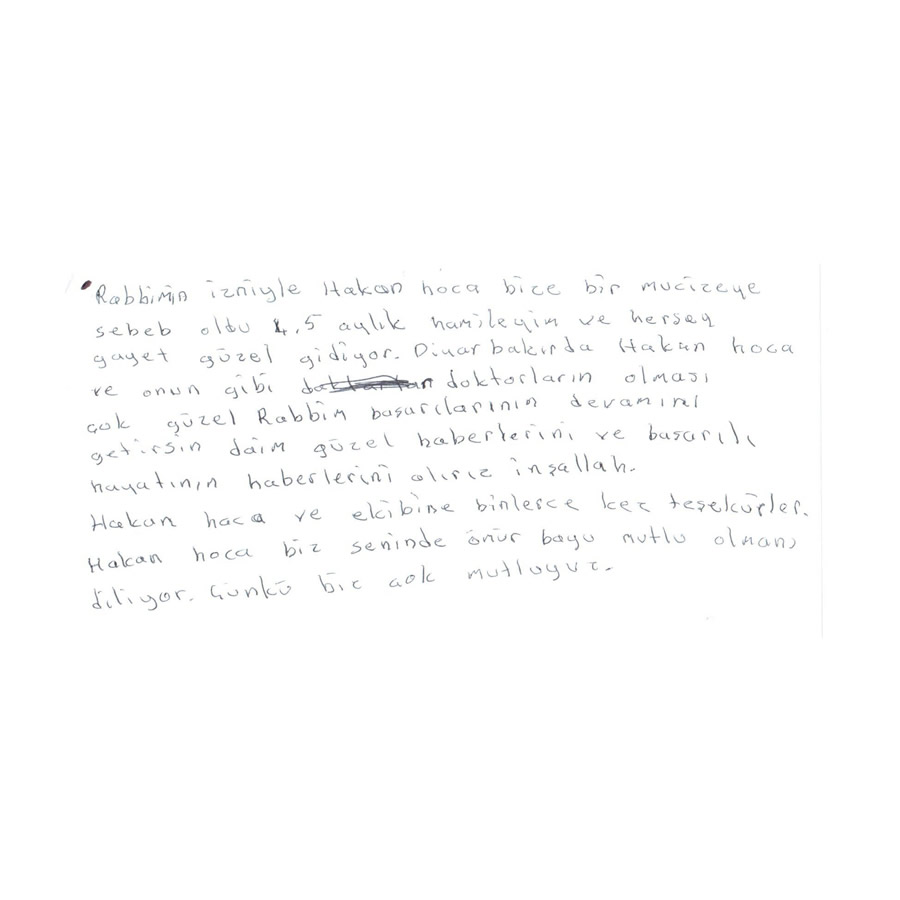 Rabbimin izniyle Hakan hoca bize bir mucizeye
sebeb oldu 4,5 aylık hamileyim ve herşey
gayet güzel gidiyor. Diyarbakırda Hakan hoca
ve onun gibi doktorların olması
çok güzel Rabbim başarılarının devamını
getirsin daim güzel haberlerini ve başarılı
hayatının haberlerini alırız inşallah.
Hakan hoca ve ekibine binlerce kez teşekürler.
Hakan hoca biz seninde ömür boyu mutlu olmanı
diliyor. Çünkü biz çok mutluyuz.